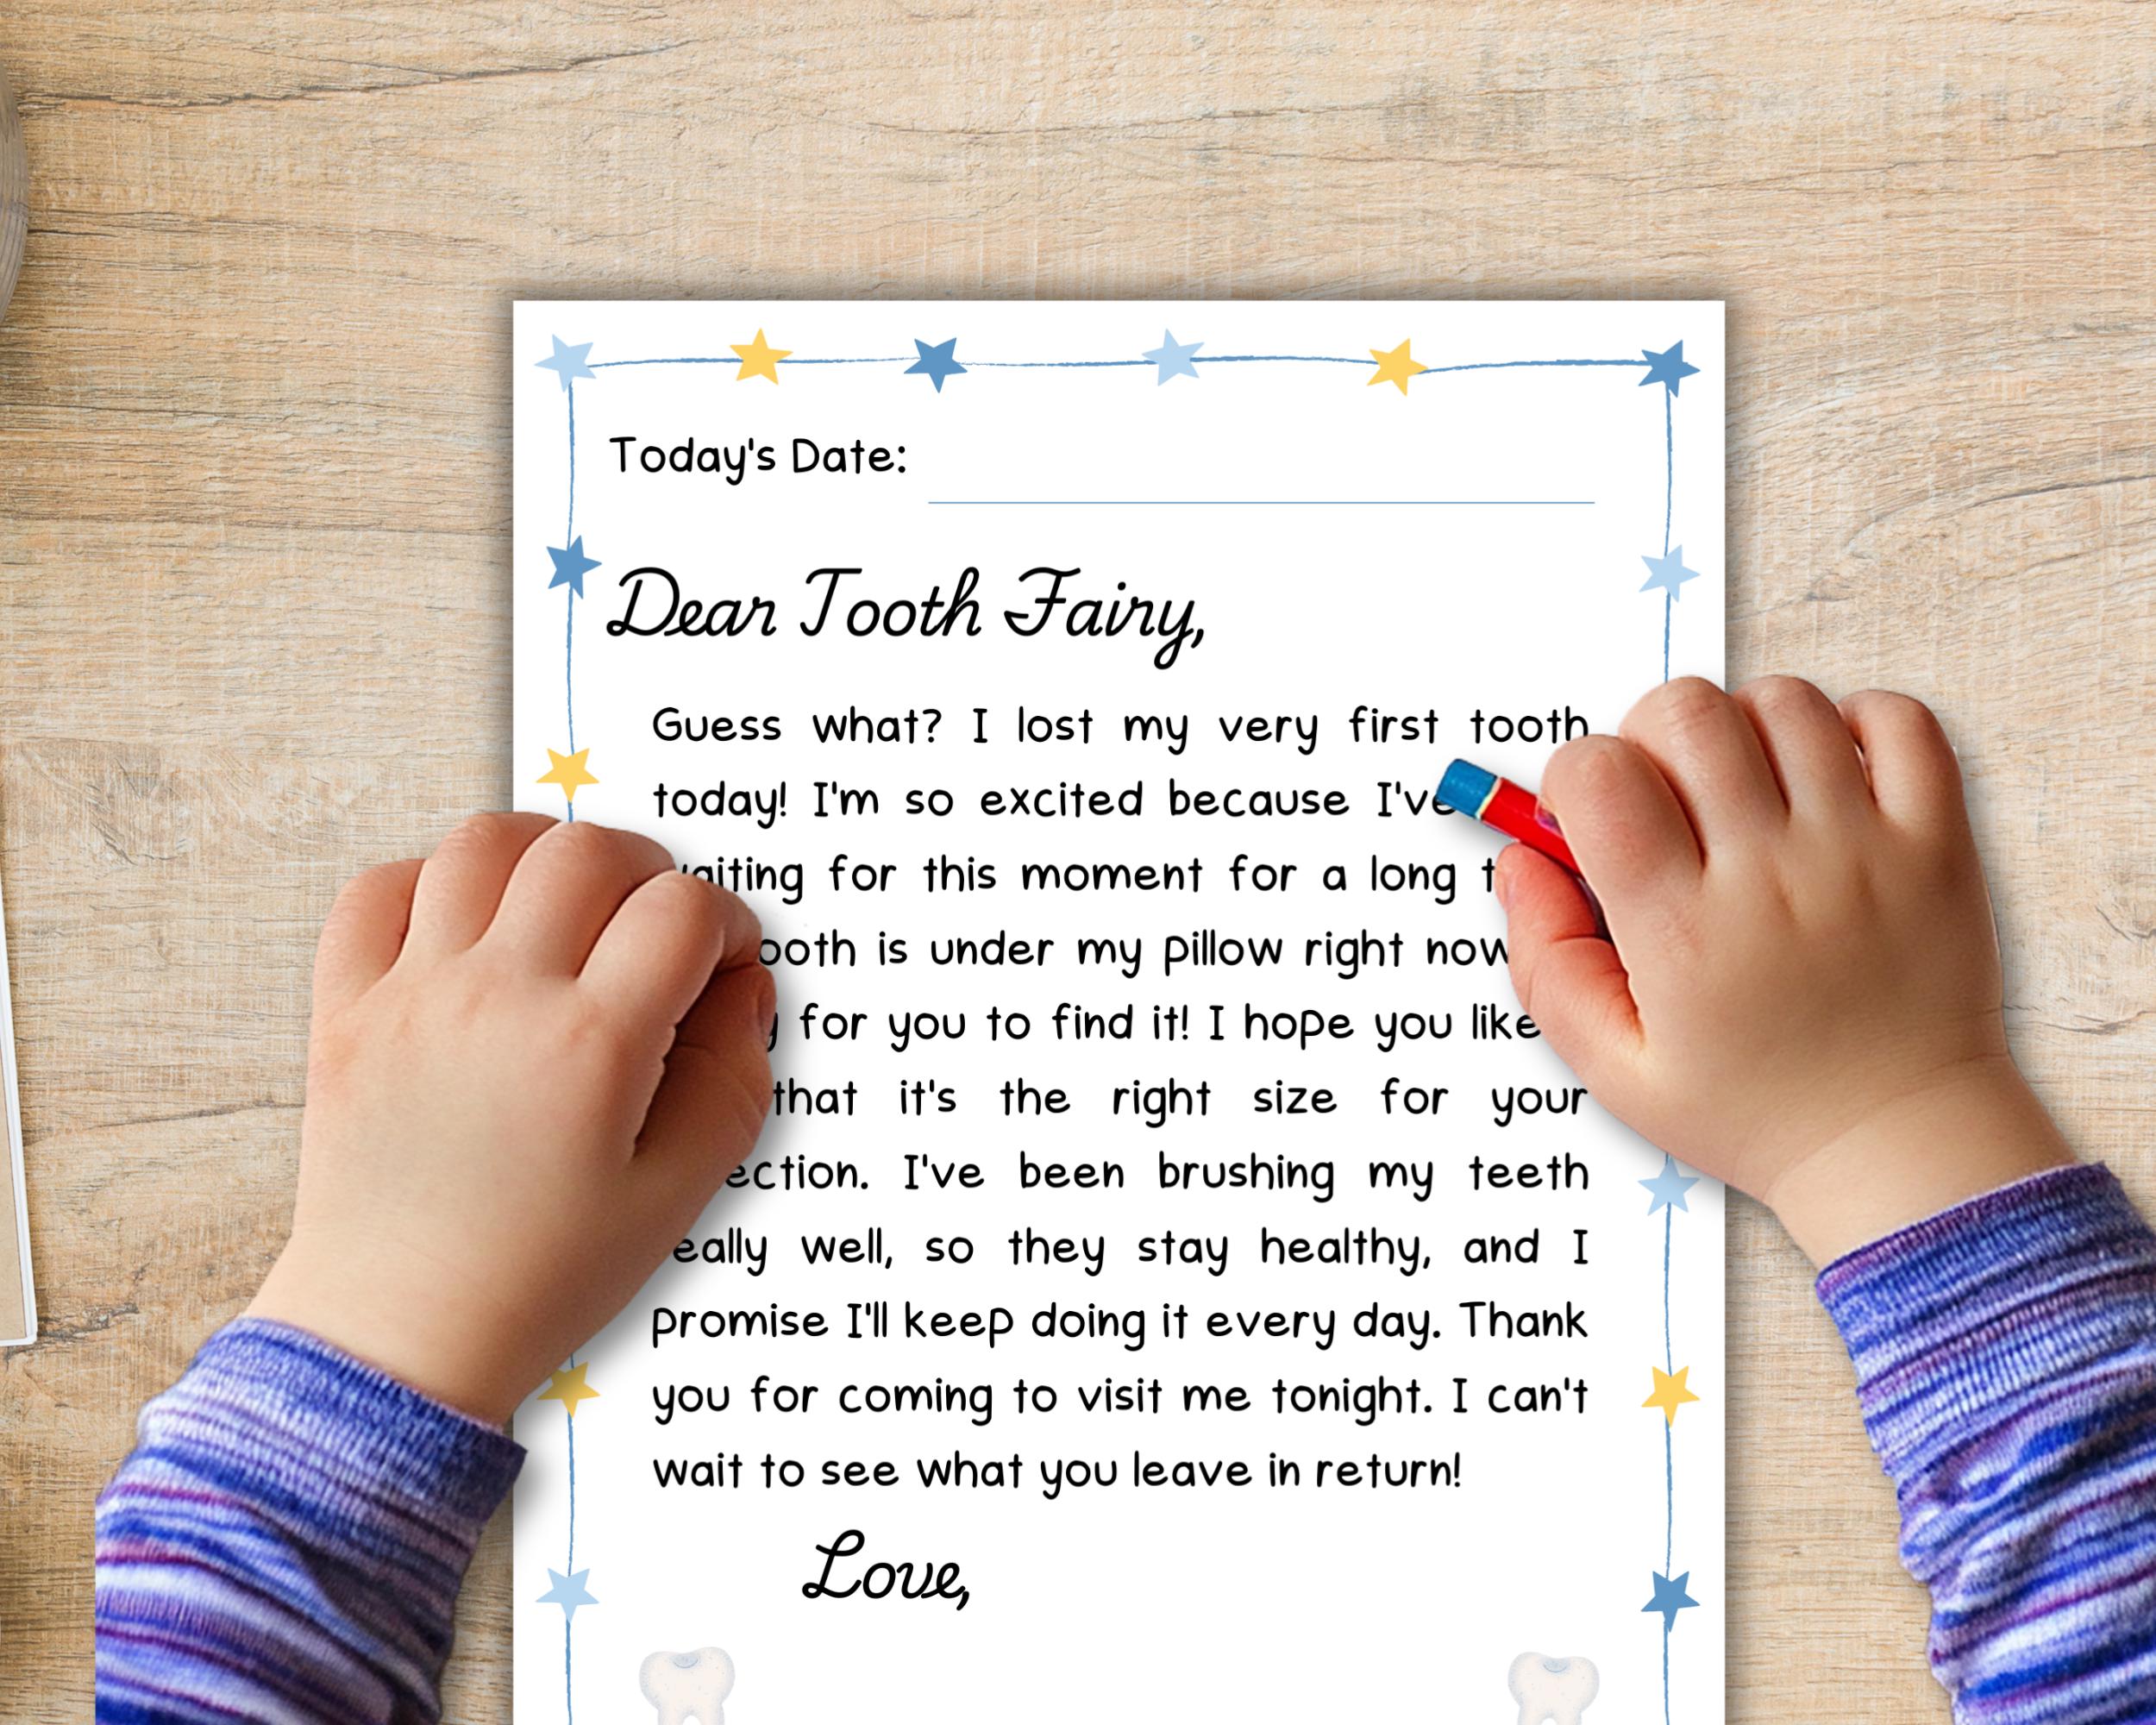 Today's Date:
Dear Tooth Fairy,
Guess what? I lost my very first tooth
today! I'm so excited because I've
waiting for this moment for a long
is under my pillow right now
for you to find it! I hope you like
that it's the right size for your
I've been brushing my teeth
really well, so they stay healthy, and I
promise I'll keep doing it every day. Thank
you for coming to visit me tonight. I can't
wait to see what you leave in return!
Love,